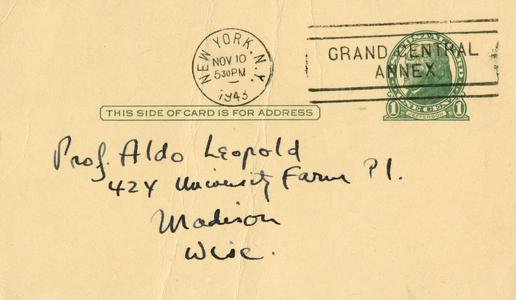 NEW YORK, N.Y.
NOV 10
530 PM
1943
GRAND CENTRAL
ANNEX
THIS SIDE OF CARD IS FOR ADDRESS
1 JEFFERSON 1
Prof. Aldo Leopold
424 University Farm Pl.
Madison
Wisc.